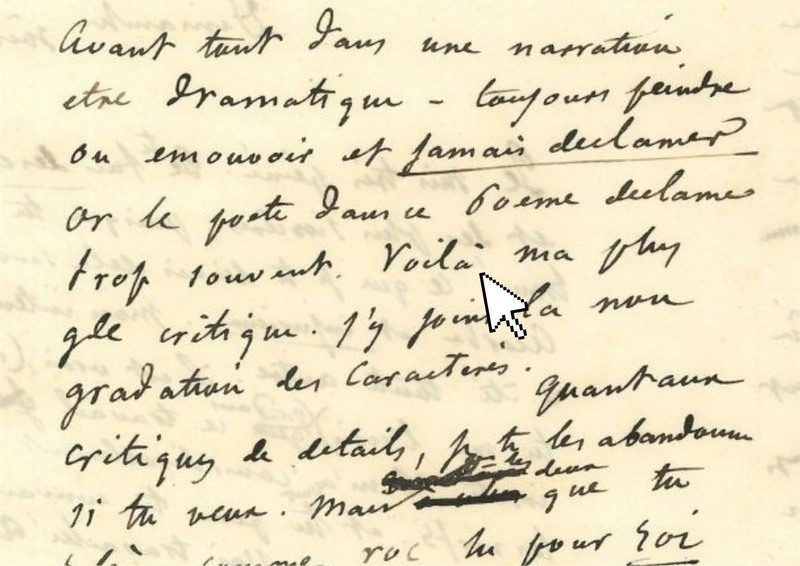 Avant tout dans une narration
etre dramatique - toujours peindre
ou emouvoir et jamais declamer
or le poete dans ce 6oeme declame
trop souvent. Voilà ma plus
gde critique. j'y joins la non
gradation des Caracteres.
quant aux
critiques de details, je te les abandonne
deux
si tu veux. Mais que tu
comme roc tu pour soi